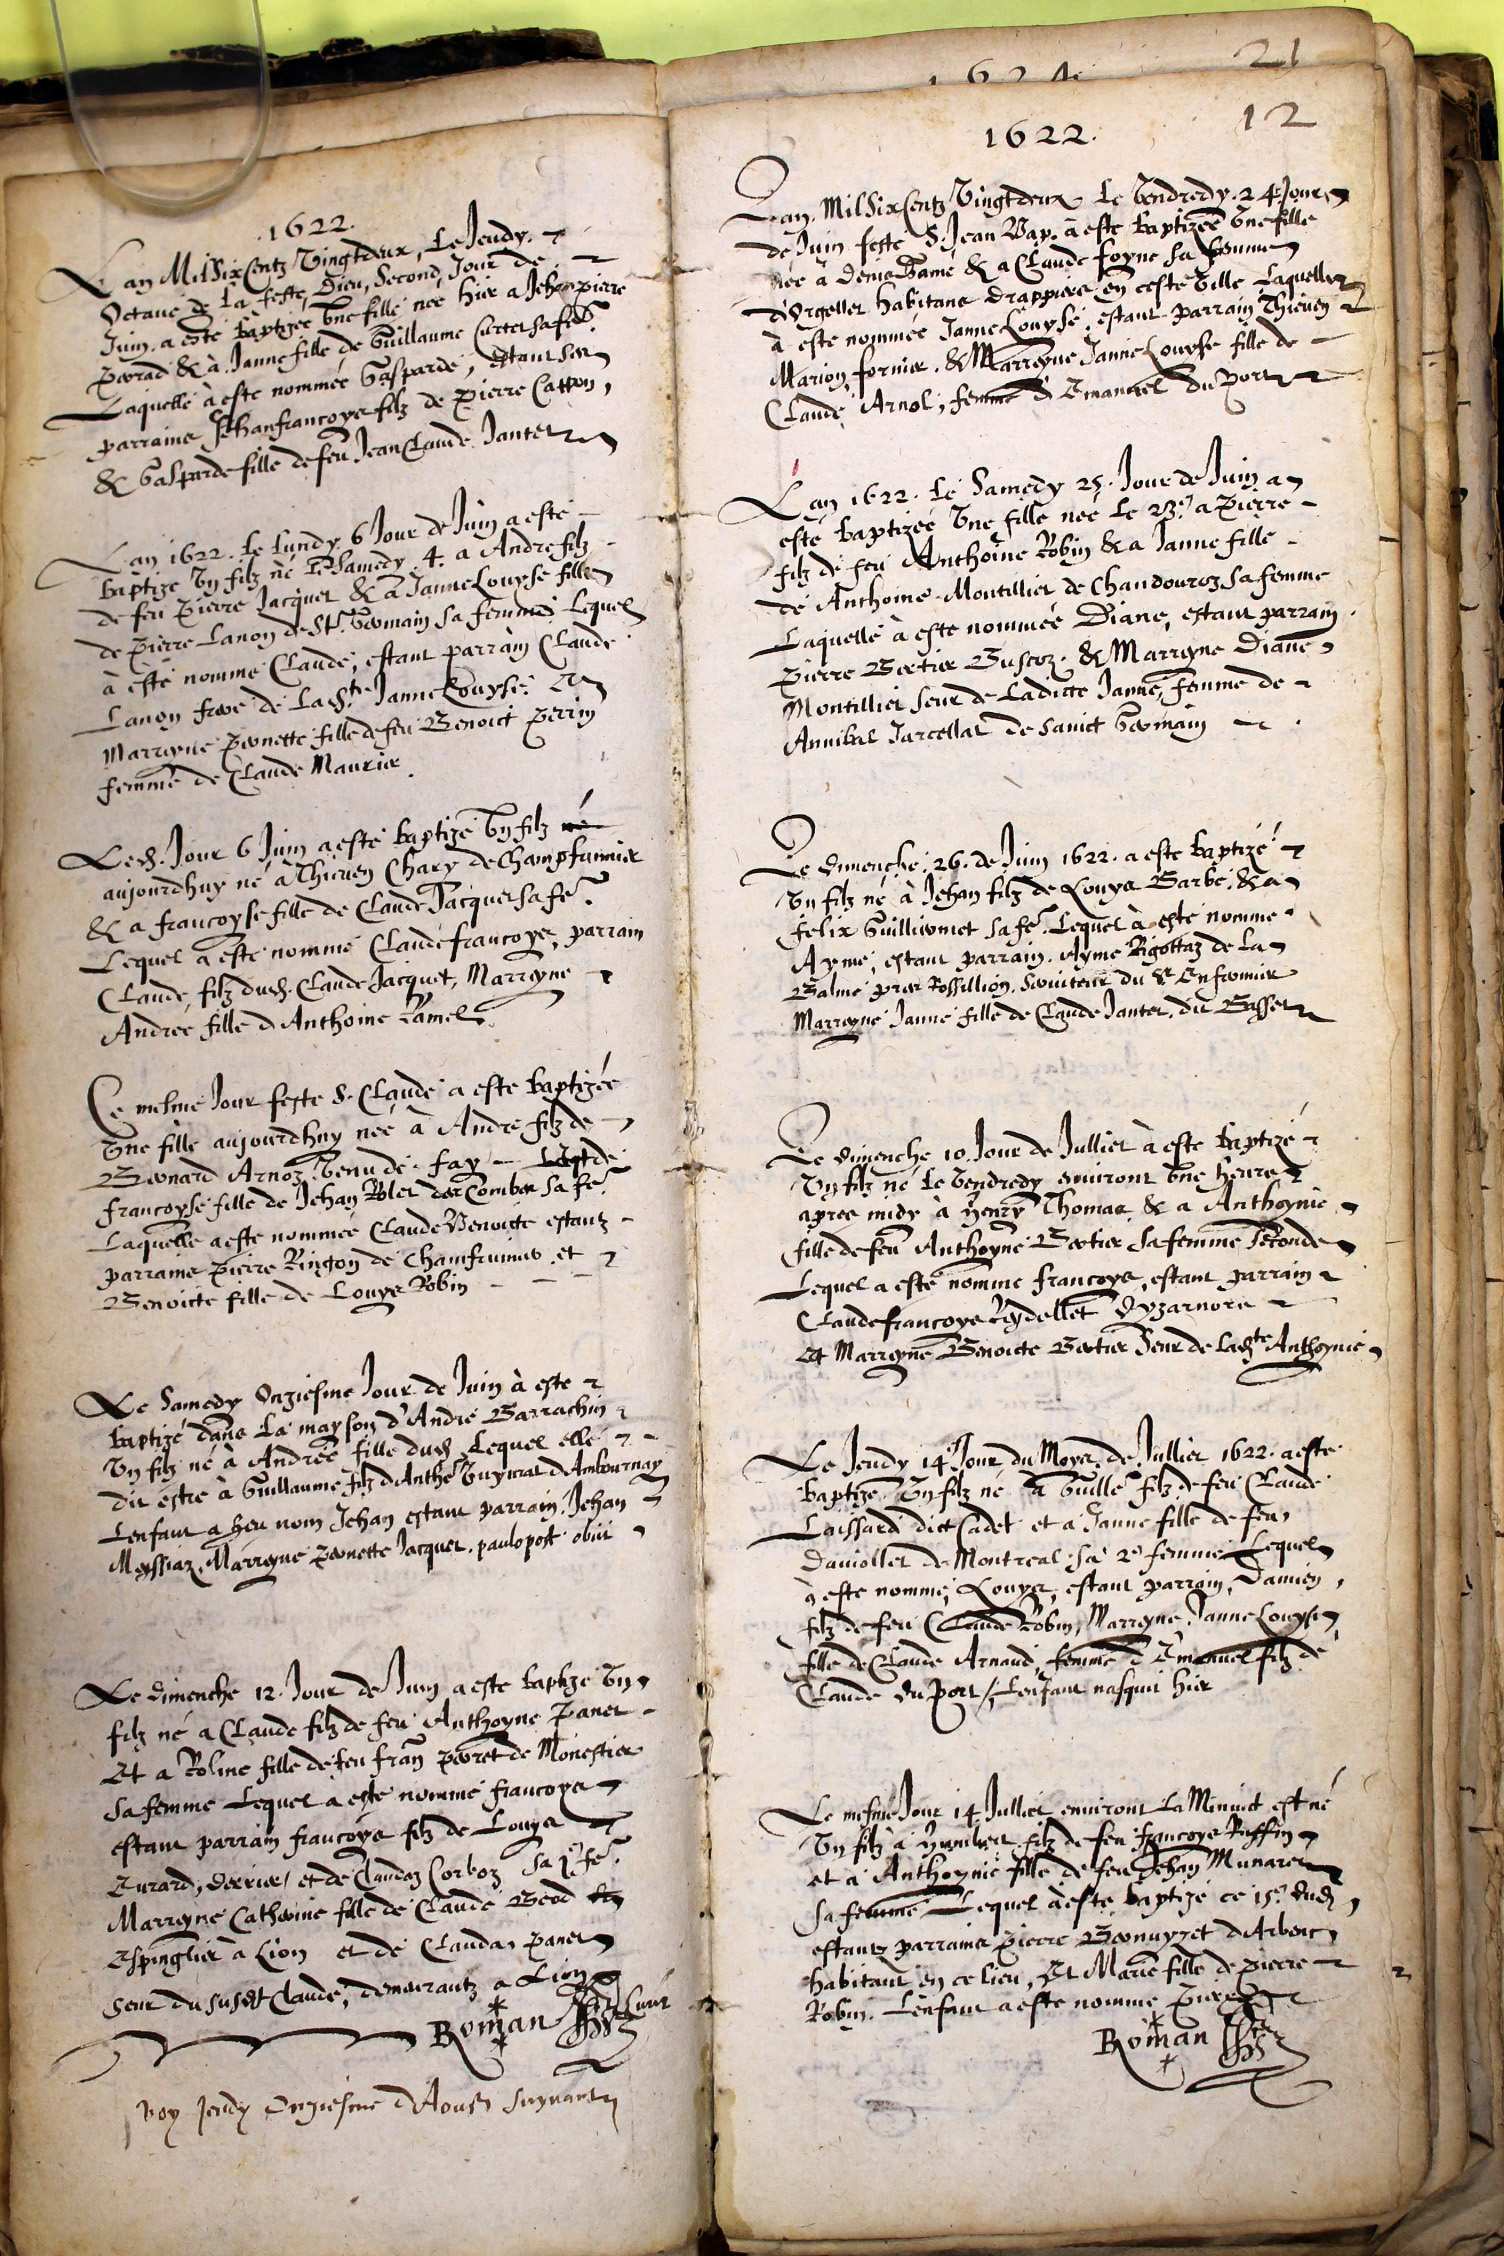 .1622.
Lan Mil Six Centz Vingtdeux, Le Jeudy.
Octave de La feste Dieu, Second Jour de
Juin. a esté baptizée Une fille neé hier a Jehanpierre
Perrad & à Janne fille de Guillaume Curtet sa fe.
Laquelle à este nommée Gasparde, estant ses
parrains Jehanfrancoys filz de Pierre Catton,
& Gasparde fille de feu Jean Claude Jantet
Lan 1622. Le Lundy 6 Jour de Juin a esté
baptize Un filz né Le Samedy 4. a Andre filz
de feu Pierre Jacquet & a Janne Louyse fille
de Pierre Lanon de St. Germain sa femme. Lequel
à esté nommé Claude, estant parrain Claude
Lanon frere de Lad.te Janne Louyse. Et
Marreyne Pernette fille de feu Benoict Perrin
femme de Claude Maurier.
Led. Jour 6 Juin a esté baptizé Un filz né
aujourdhuy né à Thieven Chary de Champfrumier
& a francoyse fille de Claude Jacquet sa fe.
Lequel a este nommé Claude francoys, parrain
Claude, filz dud. Claude Jacquet, Marreyne
Andreé fille d Anthoine Pamel.
Ce mesme Jour feste S. Claude a este baptizée
Une fille aujourdhuy neé à Andre filz de
Bernard Arnoz, Venu de fay
francoyse fille de Jehan Rolet des Combes sa fe.
Laquelle a este nommée Claude Benoicte estantz
parrains Pierre Ringon de Chamfrumier et
Benoicte fille de Louys Robin
Le Samedy Onziesme Jour de Juin à este
baptizé dans La mayson d'André Barrachin
Un filz né à Andreé fille dud. Lequel elle
dit estre à Guillaume filz d'Anthe. dAmbournay
Lenfant a heu nom Jehan estant parrain, Jehan
Meyssiaz, Marreyne Pernette Jacquet. paulo post obiit
Le dimenche 12. Jour de Juin a este baptize Un
filz né a Claude filz de feu Anthoyne Panet
Et a Roline fille de feu fran Perret de Monestier
sa femme Lequel à este nommé francoys
estant parrain francoys filz de Louys
Evrard, et de Claudaz Corboz sa fe.
Marreyne Catherine fille de Claude
Espinglier à Lion et de Claudaz Panet
seur du susdt Claude, demeurantz a Lion
Roman Curé
voy Jeudy onziesme d'Aoust suyvant
1624 21
12
1622.
Lan Mil Six Centz Vingtdeux Le Vendredy. 24 Jour
de Juin feste S. Jean Bap. à este baptizeé Une fille
neé à Denis & a Claude foyne sa femme
d'Orgellet habitans drappiers en ceste ville Laquelle
à este nommée Janne Louyse, estant parrain Thieven
Marion fornier. & Marreyne Janne Louyse fille de
Claude Arnol, femme d'Emanuel du port
Lan 1622. Le Samedy 25. Jour de Juin a
esté baptizeé Une fille neé Le 23e. a Pierre
filz de feu Anthoine Robin & a Janne fille
de Anthoine Montillier de Chandouroz sa femme
Laquelle à este nommeé Diane, estant parrain
Pierre Bertier Buscoz. & Marreyne Diane
Montillier seur de Ladicte Janne, femme de
Annibal Jarcellat de Sainct Germain
Le dimenche. 26. de Juin 1622. a este baptizé
Un filz né à Jehan filz de Louys Barbe. & a
felix Guilliermet sa fe. Lequel à este nomme
Ayme, estant parrain. Ayme Rigottaz de La
Balme pres Rossillion, serviteur du Sr Enfermier
Marreyne Janne fille de Claude Jantet. du Basset
Le dimenche 10. Jour de Jullier à este baptizé
Un filz né Le Vendredy environt Une heure
apres midy à Henry Thomas & a Anthoynie
fille de feu Anthoyne Bertier sa femme seconde
Lequel a esté nomme francoys, estant parrain
Claude francoys Reydellet dyzarnore
Et Marreyne Benoicte Bertier Seur de Lad.te Anthoynie
Le Jeudy 14e Jour du Moys de Jullier 1622. a este
baptizé Un filz né à Guille filz de feu Claude
Laissard dict Cadet et a Janne fille de feu
Daviollet de Montreal sa 2e femme Lequel
à este nommé, Louys, estant parrain, Damien,
filz de feu Claude Robin, Marreyne Janne Louyse
fille de Claude Arnaud, femme d'Emanuel filz de
Claude du port / Lenfant nasquit hier
Le mesme Jour 14 Jullier environt La Minuit est né
Un filz à Humbert filz de feu francoys Ruffin
et à Anthoynie fille de feu Jehan Munaret
sa femme Lequel à este baptizé ce 15e. dud.
estantz parrains Pierre Bernuyzet d'Arbent
habitant en ce lieu, Et Marie fille de pierre
Robin. Lenfant a este nomme Pierre
Roman